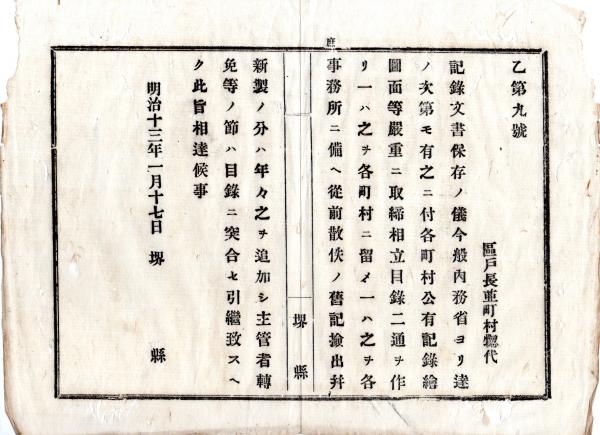 乙第九號
區戸長並町村惣代
記錄文書保存ノ儀今般内務省ヨリ達
ノ次第モ有之ニ付各町村公有記錄繪
圖面等嚴重ニ取締相立目錄二通ヲ作
リ一ハ之ヲ各町村ニ留メ一ハ之ヲ各
事務所ニ備ヘ從前散佚ノ舊記撿出幷
庶
堺縣
新製ノ分ハ年々之ヲ追加シ主管者轉
免等ノ節ハ目錄ニ突合セ引繼致スヘ
ク此旨相達候事
明治十三年一月十七日 堺縣